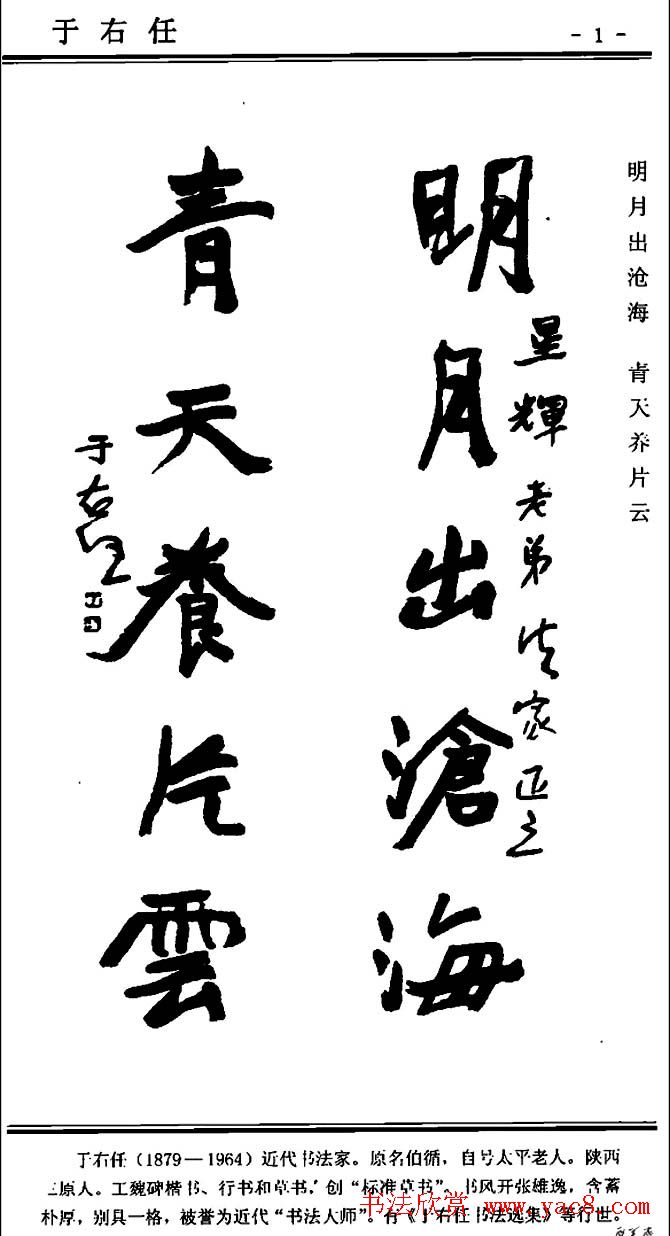 于右任
- 1 -
明月出沧海 青天养片云
明月出滄海
星輝老弟法家正之
青天養片雲
于右任
于右任（1879—1964）近代书法家。原名伯循，自号太平老人。陕西
三原人。工魏碑楷书、行书和草书，创“标准草书”，书风开张雄逸，含蓄
朴厚，别具一格，被誉为近代“书法大师”。有《于右任书法选集》等行世。
书法欣赏
www.yac8.com